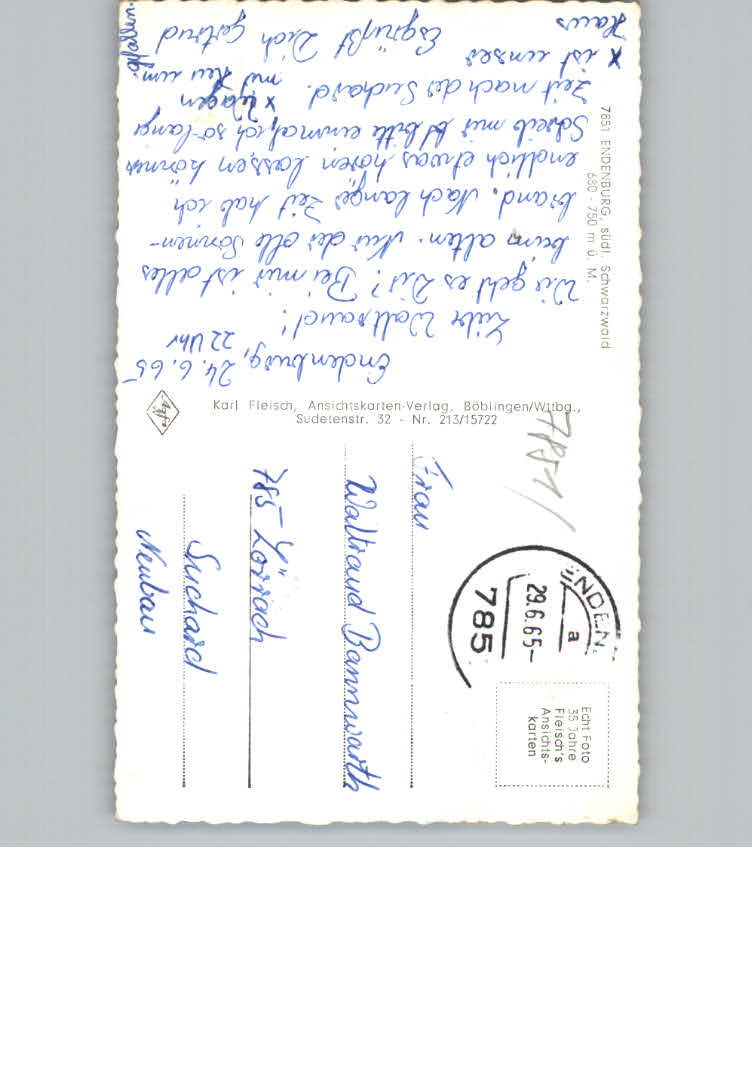 Endenburg, 24.6.65
22 Uhr
Liebe Waltraud!
Wie geht es Dir? Bei mir ist alles
beim alten. Nur der olle Sonnen-
brand. Nach langer Zeit hab ich
endlich etwas hören lassen können
Schreib mir bitte einmal, ich so lange
Zeit nach der Suchard. x Wagen
mit Heu um
Es grüßt Dich Gertrud
x ist unser
Haus
7851 ENDENBURG, südl. Schwarzwald
680 - 750 m ü. M.
Karl Fleisch, Ansichtskarten-Verlag, Böblingen/Wttbg.,
Sudetenstr. 32 - Nr. 213/15722
Agfa
7851/
785
29.6.65-
a
Echt Foto
35 Jahre
Fleisch's
Ansichts-
karten
Frau
Waltraud Bannwarth
785 Lörrach
Suchard
Neubau